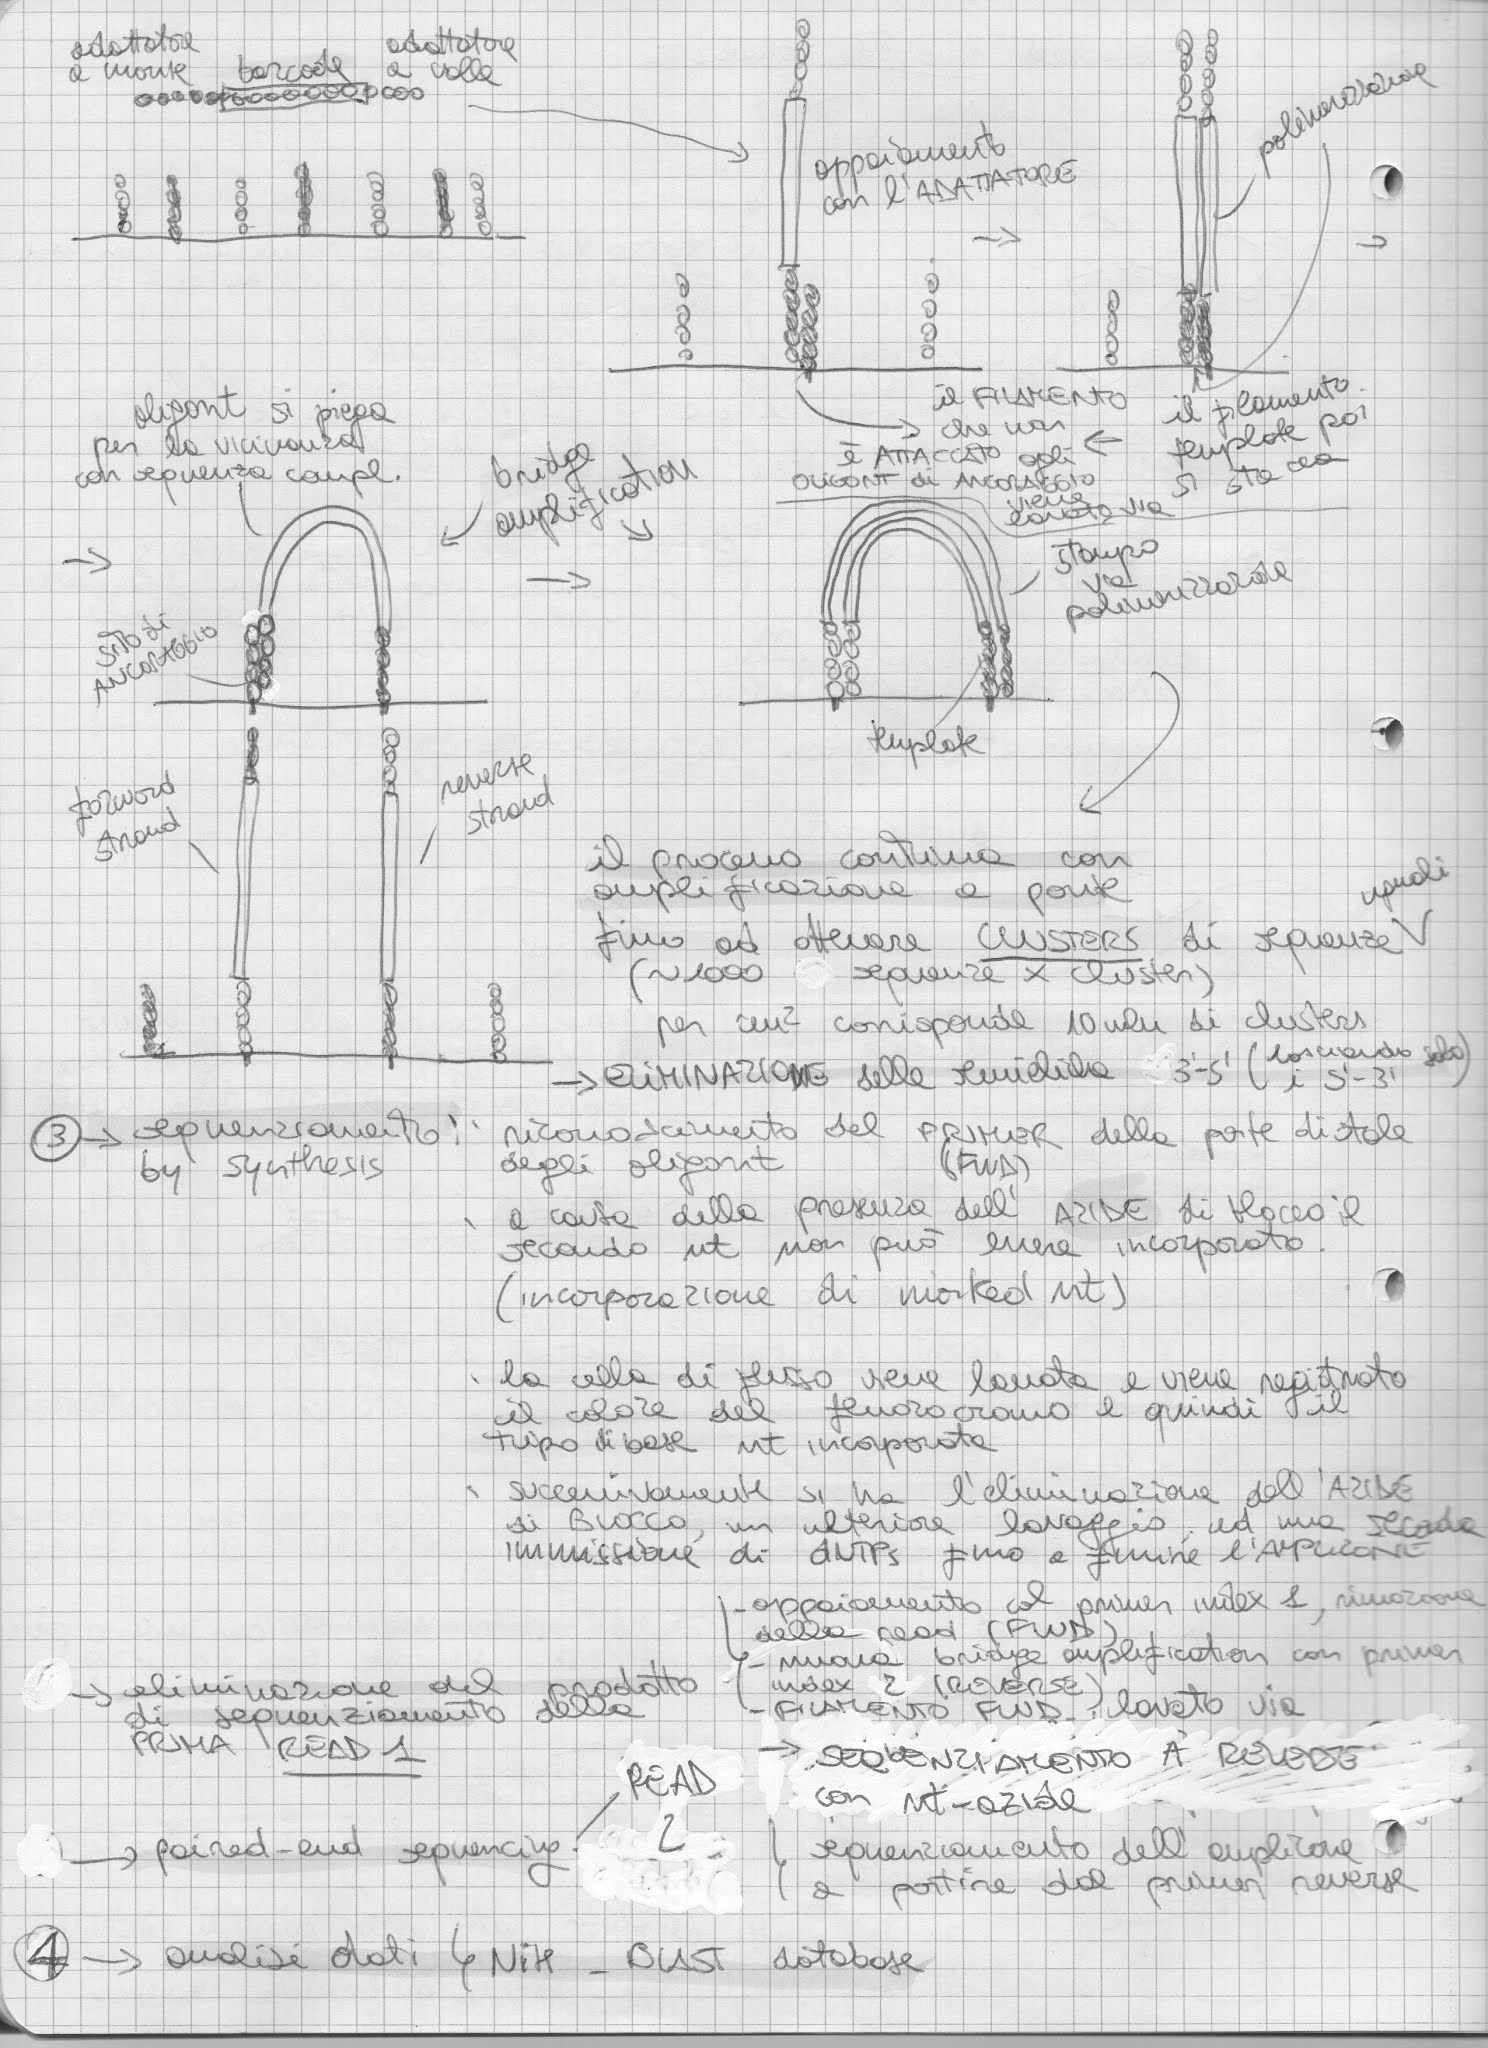 adattatore
a monte
barcode
adattatore
a valle
appaiamento
con l'ADATTATORE
polimerizzazione
il FILAMENTO
che non
è ATTACCATO agli
OLIGONT di ANCORAGGIO
viene
lavato via
il filamento
template poi
si stacca
oligont si piega
per la vicinanza
con sequenza compl.
bridge
amplification
sito di
ANCORAGGIO
stampo
via
polimerizzazione
template
forword
strand
reverse
strand
il processo continua con
amplificazione a ponte
fino ad ottenere CLUSTERS di sequenze V
uguali
(~1000 sequenze x cluster)
per cm² corrisponde 10 mln di clusters
→ ELIMINAZIONE delle semieliche 3'-5' (lasciando solo
i 5'-3')
3 → sequenziamento
by synthesis
· riconoscimento del PRIMER della parte distale
degli oligont (FWD)
· a causa della presenza dell'AZIDE di blocco il
secondo nt non può essere incorporato.
(incorporazione di marked nt)
· la cella di flusso viene lavata e viene registrato
il colore del fluorocromo e quindi il
tipo di base nt incorporata
· successivamente si ha l'eliminazione dell'AZIDE
di BLOCCO, un ulteriore lavaggio, ed una seconda
immissione di dNTPs fino a finire l'AMPLICONE
→ eliminazione del prodotto
di sequenziamento della
PRIMA READ 1
- appaiamento col primer index 1, rimozione
della read (FWD)
- nuova bridge amplification con primer
index 2 (REVERSE)
- FILAMENTO FWD lavato via
→ SEQUENZIAMENTO A REVERSE
con nt-azide
→ paired-end sequencing
READ
2
sequenziamento dell'amplicone
a partire dal primer reverse
4 → analisi dati ↳ NiH - BLAST database